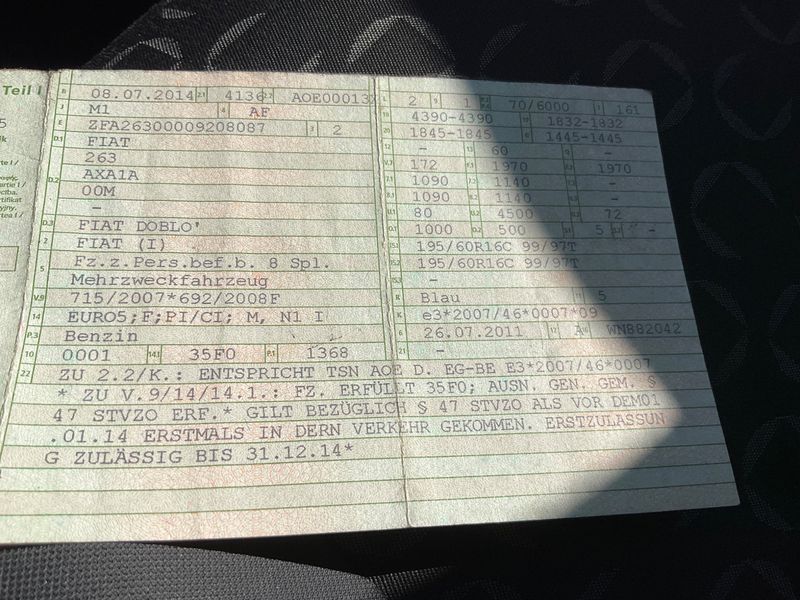 Teil I
B 08.07.2014 2.1 4136 2.2 AOE00013
J M1 4 AF
E ZFA26300009208087 3 2
D.1 FIAT
263
D.2 AXA1A
00M
–
D.3 FIAT DOBLO'
2 FIAT (I)
5 Fz.z.Pers.bef.b. 8 Spl.
Mehrzweckfahrzeug
V.9 715/2007*692/2008F
14 EURO5;F;PI/CI; M, N1 I
P.3 Benzin
10 0001 14.1 35F0 P.1 1368
L 2 9 1 70/6000 T 161
18 4390-4390 19 1832-1832
20 1845-1845 G 1445-1445
12 – 13 60 Q –
V.7 172 F.1 1970 F.2 1970
7.1 1090 7.2 1140 7.3 –
8.1 1090 8.2 1140 8.3 –
U.1 80 U.2 4500 U.3 72
O.1 1000 O.2 500 S.1 5 S.2 –
15.1 195/60R16C 99/97T
15.2 195/60R16C 99/97T
15.3 –
R Blau 11 5
K e3*2007/46*0007*09
6 26.07.2011 17 A 16 WN882042
21 –
22 ZU 2.2/K.: ENTSPRICHT TSN AOE D. EG-BE E3*2007/46*0007
* ZU V.9/14/14.1.: FZ. ERFÜLLT 35F0; AUSN. GEN. GEM. §
47 STVZO ERF.* GILT BEZÜGLICH § 47 STVZO ALS VOR DEM01
.01.14 ERSTMALS IN DERN VERKEHR GEKOMMEN. ERSTZULASSUN
G ZULÄSSIG BIS 31.12.14*